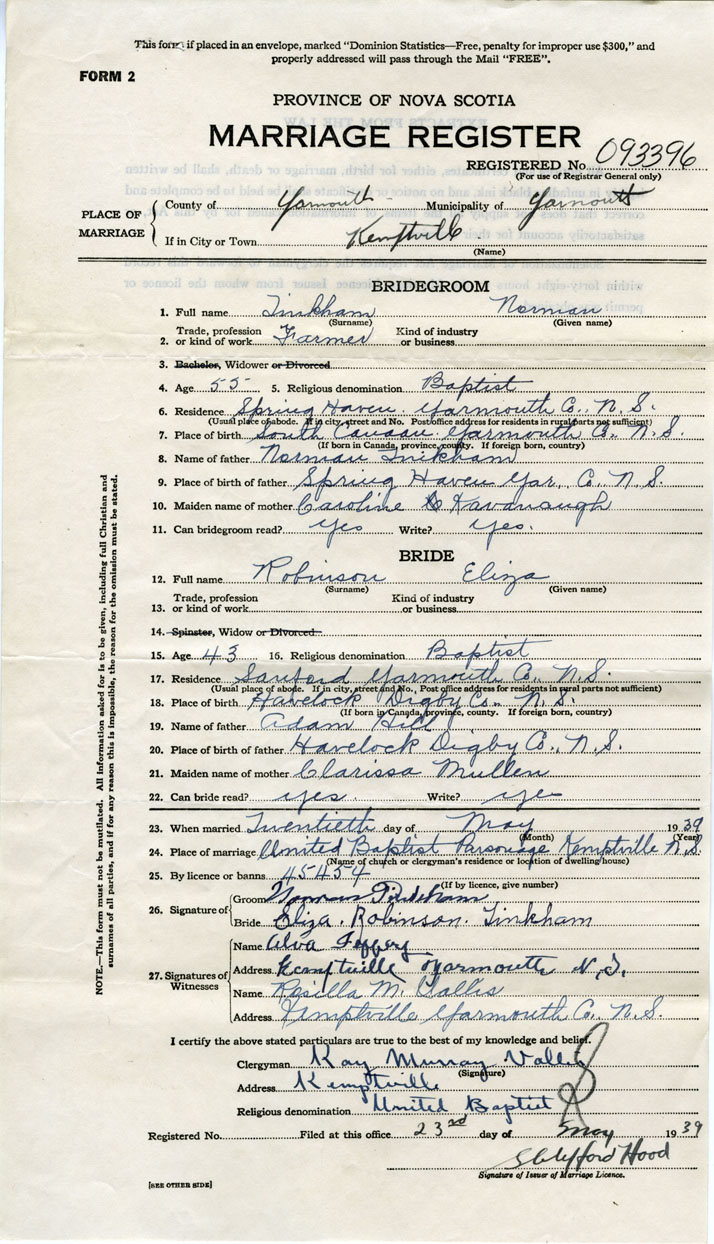 This form, if placed in an envelope, marked "Dominion Statistics—Free, penalty for improper use $300," and
properly addressed will pass through the Mail "FREE".
FORM 2
PROVINCE OF NOVA SCOTIA
MARRIAGE REGISTER
REGISTERED No 093396
(For use of Registrar General only)
PLACE OF MARRIAGE
County of Yarmouth Municipality of Yarmouth
If in City or Town Kemptville
(Name)
BRIDEGROOM
1. Full name Tinkham Norman
(Surname) (Given name)
Trade, profession Kind of industry
2. or kind of work Farmer or business
3. Bachelor, Widower or Divorced
4. Age 55 5. Religious denomination Baptist
6. Residence Spring Haven Yarmouth Co., N.S.
(Usual place of abode. If in city, street and No. Post office address for residents in rural parts not sufficient)
7. Place of birth South Canaan Yarmouth Co. N.S.
(If born in Canada, province, county. If foreign born, country)
8. Name of father Norman Tinkham
9. Place of birth of father Spring Haven Yar. Co., N.S.
10. Maiden name of mother Caroline Kavanaugh
11. Can bridegroom read? yes Write? yes.
BRIDE
12. Full name Robinson Eliza
(Surname) (Given name)
Trade, profession Kind of industry
13. or kind of work or business
14. Spinster, Widow or Divorced
15. Age 43 16. Religious denomination Baptist
17. Residence Sanford Yarmouth Co., N.S.
(Usual place of abode. If in city, street and No., Post office address for residents in rural parts not sufficient)
18. Place of birth Havelock Digby Co., N.S.
(If born in Canada, province, county. If foreign born, country)
19. Name of father Adam Hill
20. Place of birth of father Havelock Digby Co., N.S.
21. Maiden name of mother Clarissa Mullen
22. Can bride read? yes. Write? yes
23. When married Twentieth day of May 1939
(Month) (Year)
24. Place of marriage United Baptist Parsonage Kemptville N.S.
(Name of church or clergyman's residence or location of dwelling house)
25. By licence or banns 45454
(If by licence, give number)
26. Signature of
Groom Norman Tinkham
Bride Eliza. Robinson. Tinkham
27. Signatures of Witnesses
Name Alva
Address Kemptville Yarmouth N.S.
Name Rosilla M.
Address Kemptville Yarmouth Co. N.S.
I certify the above stated particulars are true to the best of my knowledge and belief.
Clergyman Murray
(Signature)
Address Kemptville
Religious denomination United Baptist
Registered No. Filed at this office 23rd day of May 1939
Hood
Signature of Issuer of Marriage Licence.
[SEE OTHER SIDE]
NOTE.—This form must not be mutilated. All information asked for is to be given, including full Christian and
surnames of all parties, and if for any reason this is impossible, the reason for the omission must be stated.